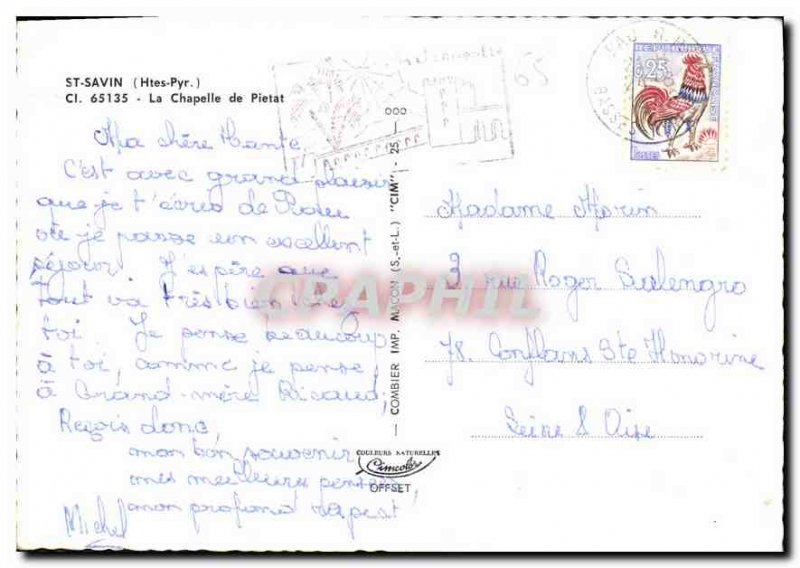 ST-SAVIN (Htes-Pyr.)
Cl. 65135 - La Chapelle de Pietat
Ma chère Tante,
C'est avec grand plaisir
que je t'écris de Pau
où je passe un excellent
séjour. J'espère que
tout va très bien chez
toi. Je pense beaucoup
à toi, comme je pense
à Grand-mère Ricaud,
Reçois donc,
mon bon souvenir
mes meilleures pensées
mon profond respect
Michel
000
COMBIER IMP. MACON (S.-et-L.) "CIM" - 25 -
COULEURS NATURELLES
Cimcolor
OFFSET
65
PAU R.P.
BASSES
0,25
Madame Morin
3 rue Roger Salengro
78. Conflans Ste Honorine
Seine & Oise
CPAPHIL